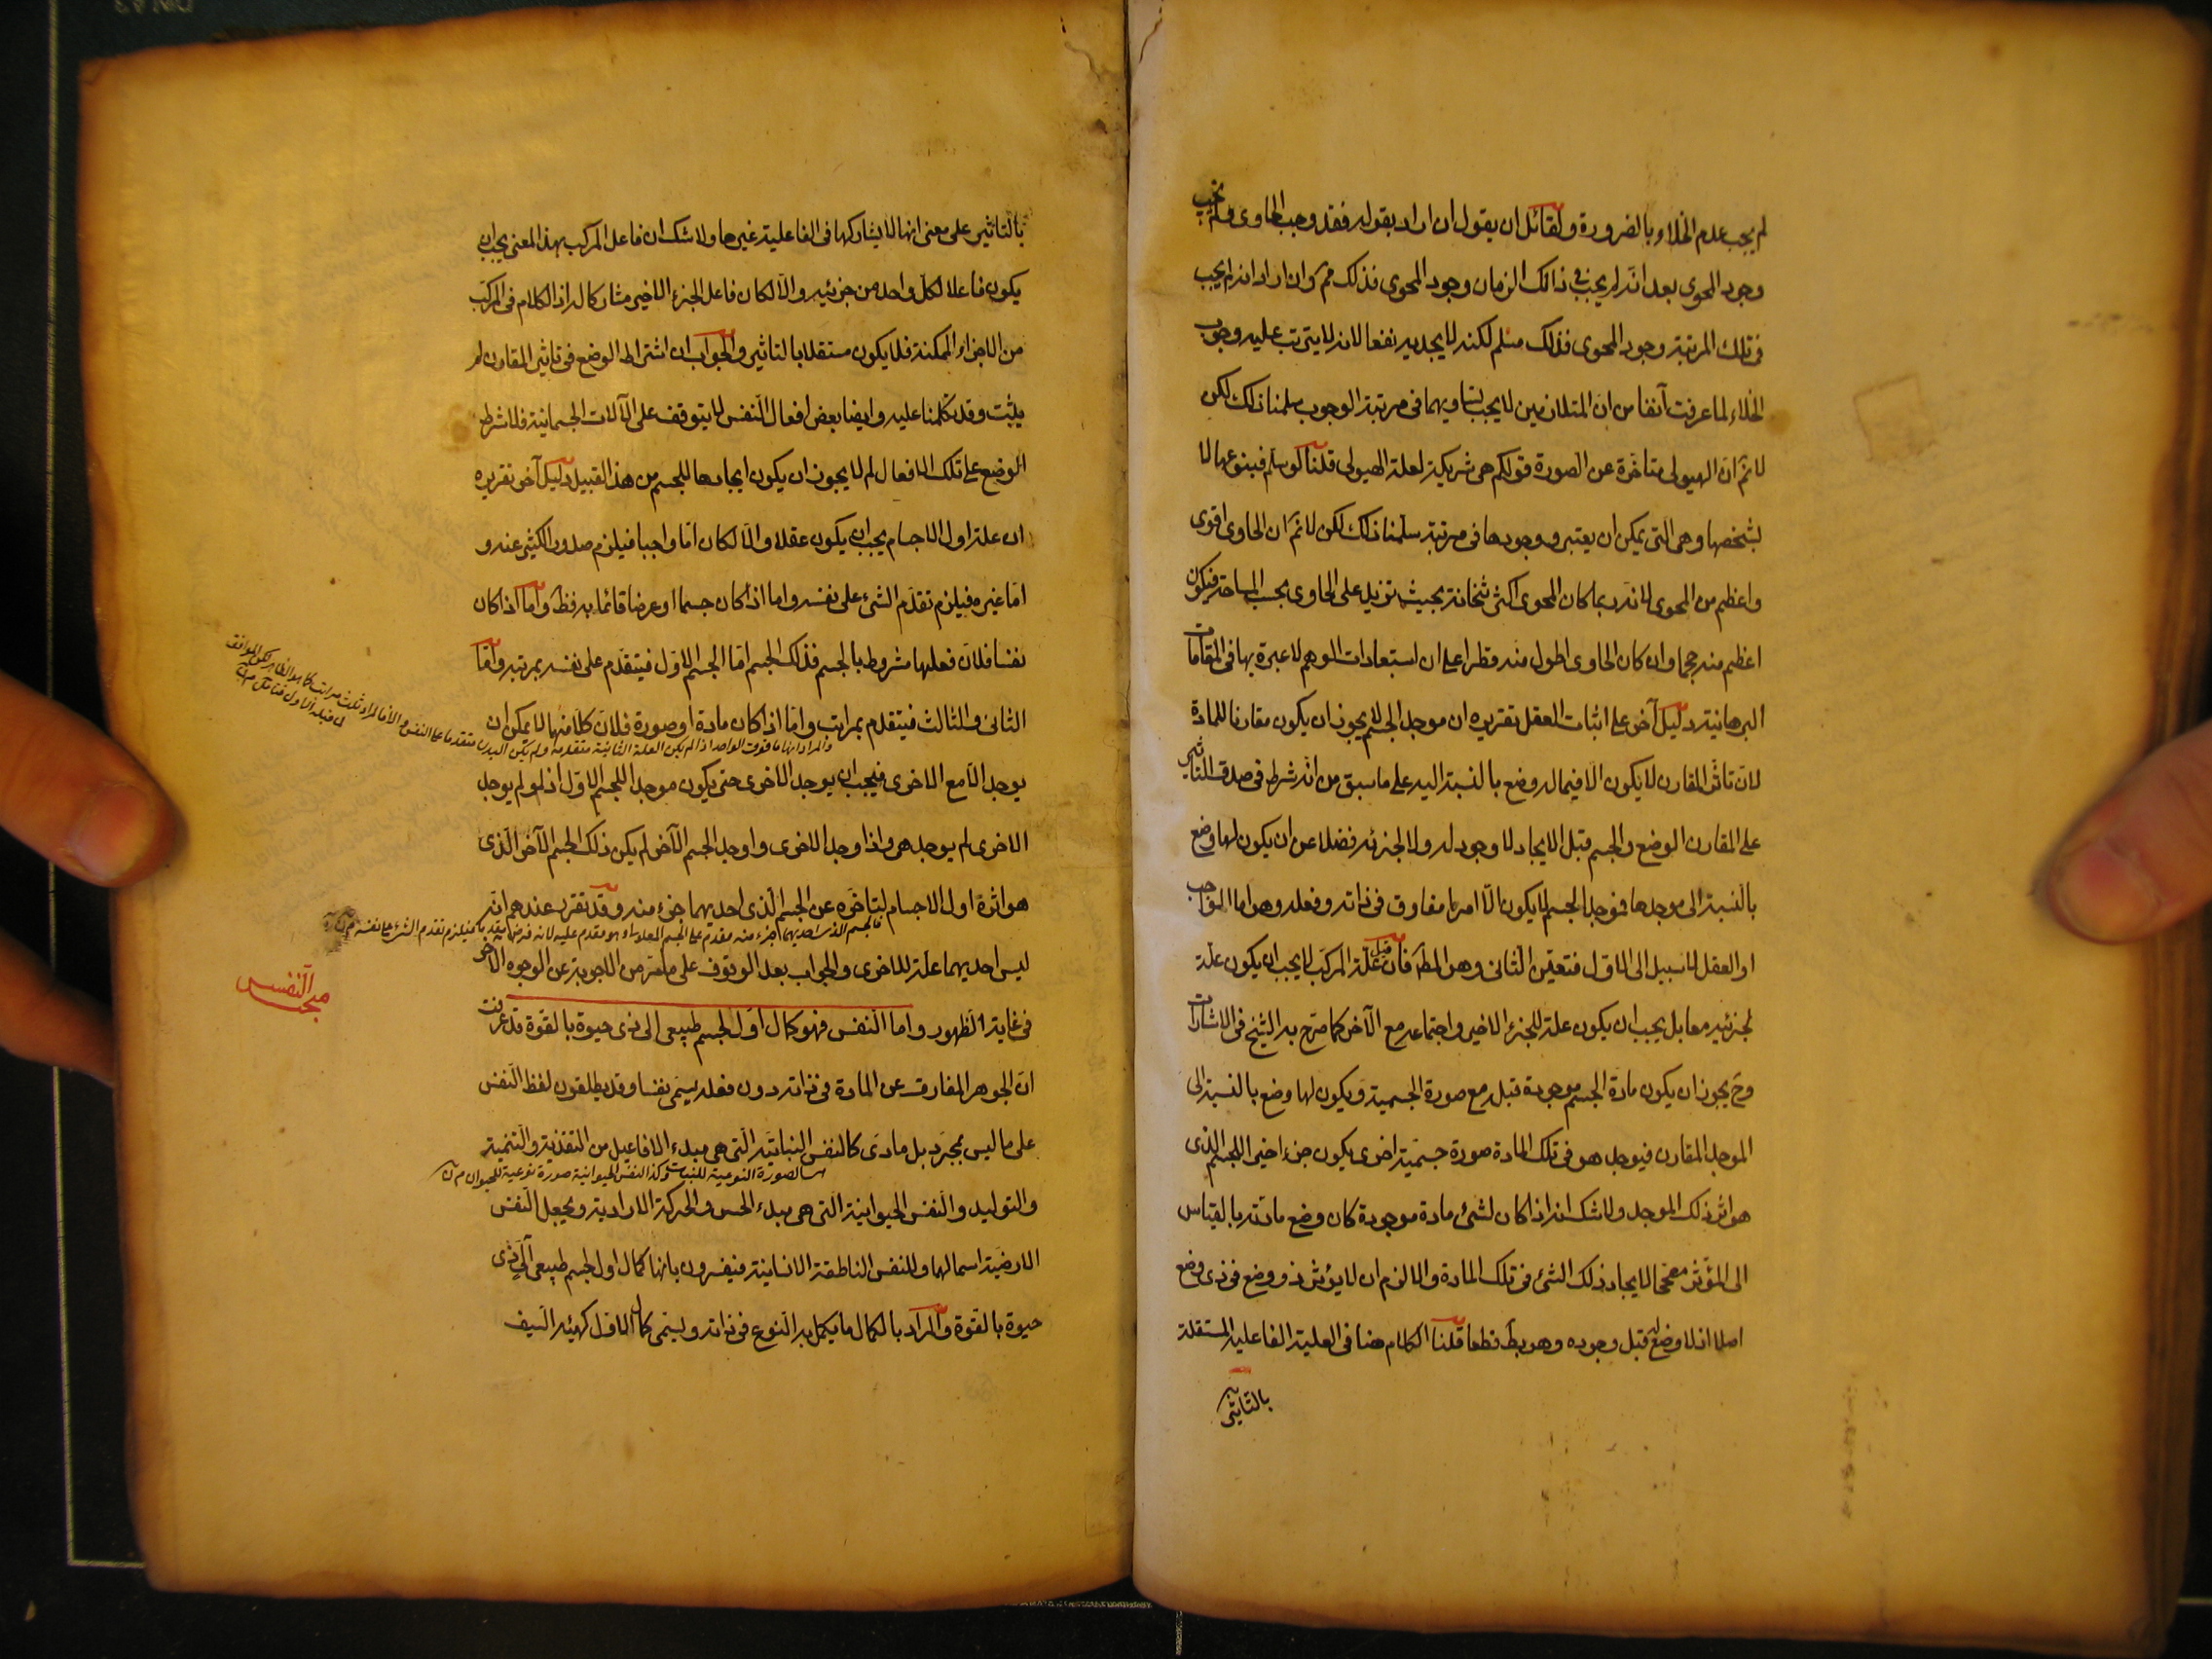 لم يجب عدم الخلاء بالضرورة ولقائل ان يقول ان اراد بقوله فقد وجب الحاوى ولم يجب
وجود المحوى بعد انه لم يجب فى ذلك الزمان وجود المحوى فذلك مم وان اراد انه لم يجب
فى تلك المرتبة وجود المحوى فذلك مسلم لكنه لا يجديه نفعا لانه لا يترتب عليه وجوب
الخلاء لما عرفت آنفا من ان المتلازمين لا يجب تساويهما فى مرتبة الوجوب سلمنا ذلك لكن
لا نم ان الهيولى متاخرة عن الصورة قولكم هى شريكة لعلة الهيولى قلنا لو سلم فبنوعها لا
بشخصها وهى التى يمكن ان يعتبر وجودها فى مرتبة سلمنا ذلك لكن لا نم ان الحاوى اقوى
واعظم من المحوى لانه ربما كان المحوى اكثر ثخانة بحيث تزيد على الحاوى بحسب المساحة فيكون
اعظم منه حجما وان كان الحاوى اطول منه قطرا على ان استبعادات الوهم لا عبرة بها فى المقامات
البرهانية دليل آخر على اثبات العقل تقريره ان موجد الجسم لا يجوز ان يكون مقارنا للمادة
لان تاثير المقارن لا يكون الا فيما له وضع بالنسبة اليه على ما سبق من انه شرط فى صدق التاثير
على المقارن الوضع والجسم قبل الايجاد لا وجود له ولا لجزئه فضلا عن ان يكون لها وضع
بالنسبة الى موجدها فموجد الجسم لا يكون الا امرا مفارق فى ذاته وفعله وهو اما الواجب
او العقل لا سبيل الى الاول فتعين الثانى وهو المط فان قيل علة المركب لا يجب ان يكون علة
لجزئيه معا بل يجب ان يكون علة للجزء الاخير واجتماعه مع الآخر كما صرح به الشيخ فى الاشارات
وح يجوز ان يكون مادة الجسم موجودة قبله مع صورة الجسمية ويكون لها وضع بالنسبة الى
الموجد المقارن فيوجد هو فى تلك المادة صورة جسمية اخرى يكون جزء اخيرا للجسم الذى
هو اثر ذلك الموجد ولا شك انه اذا كان لشئ مادة موجودة كان وضع مادته بالقياس
الى المؤثر مصححا لايجاد ذلك الشئ فى تلك المادة والا لزم ان لا يؤثر ذو وضع فى ذى وضع
اصلا اذ لا وضع له قبل وجوده وهو بط قطعا قلنا الكلام هنا فى العلية الفاعلية المستقلة
بالتاثير
بالتاثير على معنى انها لا يشاركها فى الفاعلية غيرها ولا شك ان فاعل المركب بهذا المعنى يجب ان
يكون فاعلا لكل واحد من جزئيه والا لكان فاعل الجزء الاخير مشاركا له اذ الكلام فى المركب
من الاجزاء الممكنة فلا يكون مستقلا بالتاثير والجواب ان اشتراط الوضع فى تاثير المقارن لم
يثبت وقد تكلمنا عليه وايضا بعض افعال النفس لا يتوقف على الآلات الجسمانية فلا شرط
الوضع على تلك الافعال لم لا يجوز ان يكون ايجادها للجسم من هذا القبيل دليل آخر تقريره
ان علة اول الاجسام يجب ان يكون عقلا والا لكان اما واجبا فيلزم صدور الكثير عنه و
اما غيره فيلزم تقدم الشئ على نفسه واما اذا كان جسما او عرضا قائما به فظ واما اذا كان
نفسا فلان فعلها مشروط بالجسم فذلك الجسم اما الجسم الاول فيتقدم على نفسه بمرتبة واما
الثانى والثالث فيتقدم بمراتب واما اذا كان مادة او صورة فلان كلا منها لا يمكن ان
يوجد الا مع الاخرى فيجب ان يوجد الاخرى حتى يكون موجدا للجسم الاول اذ لو لم يوجد
الاخرى لم يوجد هى واذا وجد الاخرى واوجد الجسم الآخر لم يكن ذلك الجسم الآخر الذى
هو اثره اول الاجسام لتاخره عن الجسم الذى احديهما جزء منه وقد تقرر عندهم انه
ليس احديهما علة للاخرى والجواب بعد الوقوف على ما مر من الاجوبة عن الوجوه الاخر
فى غاية الظهور واما النفس فهو كمال اول لجسم طبيعى الى ذى حيوة بالقوة قد عرفت
ان الجوهر المفارق عن المادة فى ذاته دون فعله يسمى نفسا وقد يطلقون لفظ النفس
على ما ليس بمجرد بل مادى كالنفس النباتية التى هى مبدء الافاعيل من التغذية والتنمية
الصورة النوعية للنبات وكذا النفس الحيوانية صورة نوعية للحيوان
والتوليد والنفس الحيوانية التى هى مبدء الحس والحركة الارادية ويجعل النفس
الارضية اسما لهما وللنفس الناطقة الانسانية فيفسرون بانها كمال اول لجسم طبيعى آلى ذى
حيوة بالقوة والمراد بالكمال ما يكمل به النوع فى ذاته ويسمى كمالا اول كهيئة السيف
مبحث النفس